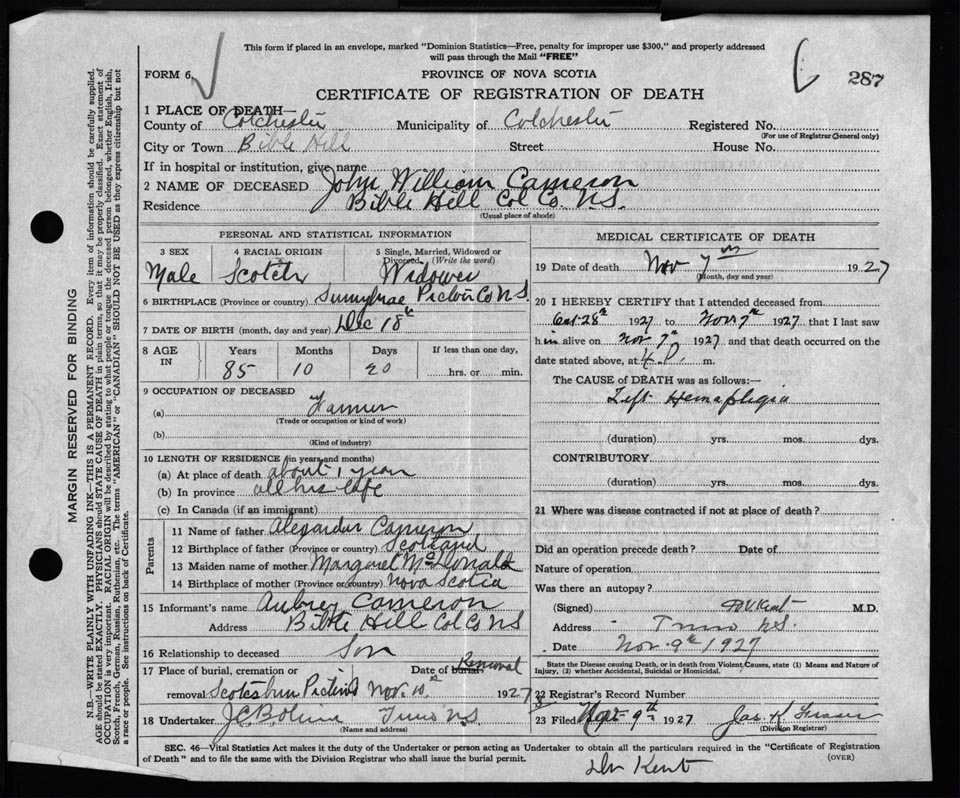 This form if placed in an envelope, marked "Dominion Statistics—Free, penalty for improper use $300," and properly addressed
will pass through the Mail "FREE"
FORM 6.
PROVINCE OF NOVA SCOTIA
287
CERTIFICATE OF REGISTRATION OF DEATH
1 PLACE OF DEATH—
County of Colchester Municipality of Colchester Registered No.
(For use of Registrar General only)
City or Town Bible Hill Street House No.
If in hospital or institution, give name
2 NAME OF DECEASED John William Cameron
Residence Bible Hill Col Co. N.S.
(Usual place of abode)
PERSONAL AND STATISTICAL INFORMATION
3 SEX 4 RACIAL ORIGIN 5 Single, Married, Widowed or
Divorced (Write the word)
Male Scotch Widower
6 BIRTHPLACE (Province or country) Sunnybrae Pictou Co N.S.
7 DATE OF BIRTH (month, day and year) Dec 18th
8 AGE IN Years Months Days If less than one day,
85 10 20 hrs. or min.
9 OCCUPATION OF DECEASED
(a) Farmer
(Trade or occupation or kind of work)
(b)
(Kind of industry)
10 LENGTH OF RESIDENCE (in years and months)
(a) At place of death about 1 year
(b) In province all his life
(c) In Canada (if an immigrant)
Parents
11 Name of father Alexander Cameron
12 Birthplace of father (Province or country) Scotland
13 Maiden name of mother Margaret McDonald
14 Birthplace of mother (Province or country) Nova Scotia
15 Informant's name Aubrey Cameron
Address Bible Hill Col Co N S
16 Relationship to deceased Son
17 Place of burial, cremation or Date of burial Removal
removal Nov. 10th 1927
18 Undertaker Truro N.S.
(Name and address)
MEDICAL CERTIFICATE OF DEATH
19 Date of death Nov 7th 1927
(Month, day and year)
20 I HEREBY CERTIFY that I attended deceased from
Oct. 28th 1927 to Nov 7th 1927 that I last saw
him alive on Nov 7th 1927 and that death occurred on the
date stated above, at 4 P. m.
The CAUSE of DEATH was as follows:—
Left Hemaplegia
(duration) yrs. mos. dys.
CONTRIBUTORY
(duration) yrs. mos. dys.
21 Where was disease contracted if not at place of death?
Did an operation precede death? Date of
Nature of operation
Was there an autopsy?
(Signed) Kent M.D.
Address Truro N.S.
Date Nov. 9th 1927
State the Disease causing Death, or in death from Violent Causes, state (1) Means and Nature of
Injury, (2) whether Accidental, Suicidal or Homicidal.
22 Registrar's Record Number
23 Filed 9th 1927 Jas. K. Fraser
(Division Registrar)
SEC. 46—Vital Statistics Act makes it the duty of the Undertaker or person acting as Undertaker to obtain all the particulars required in the "Certificate of Registration
of Death" and to file the same with the Division Registrar who shall issue the burial permit.
(OVER)
Dr Kent
MARGIN RESERVED FOR BINDING
N.B. WRITE PLAINLY WITH UNFADING INK—THIS IS A PERMANENT RECORD. Every item of information should be carefully supplied.
AGE should be stated EXACTLY. PHYSICIANS should STATE CAUSE OF DEATH in plain terms, so that it may be properly classified. Exact statement of
OCCUPATION is very important. RACIAL ORIGIN will be described by stating to what people or tongue the deceased person belonged, whether English, Irish,
Scotch, French, German, Russian, Ruthenian, etc. The terms "AMERICAN" or "CANADIAN" SHOULD NOT BE USED as they express citizenship but not
a race or people. See instructions on back of Certificate.